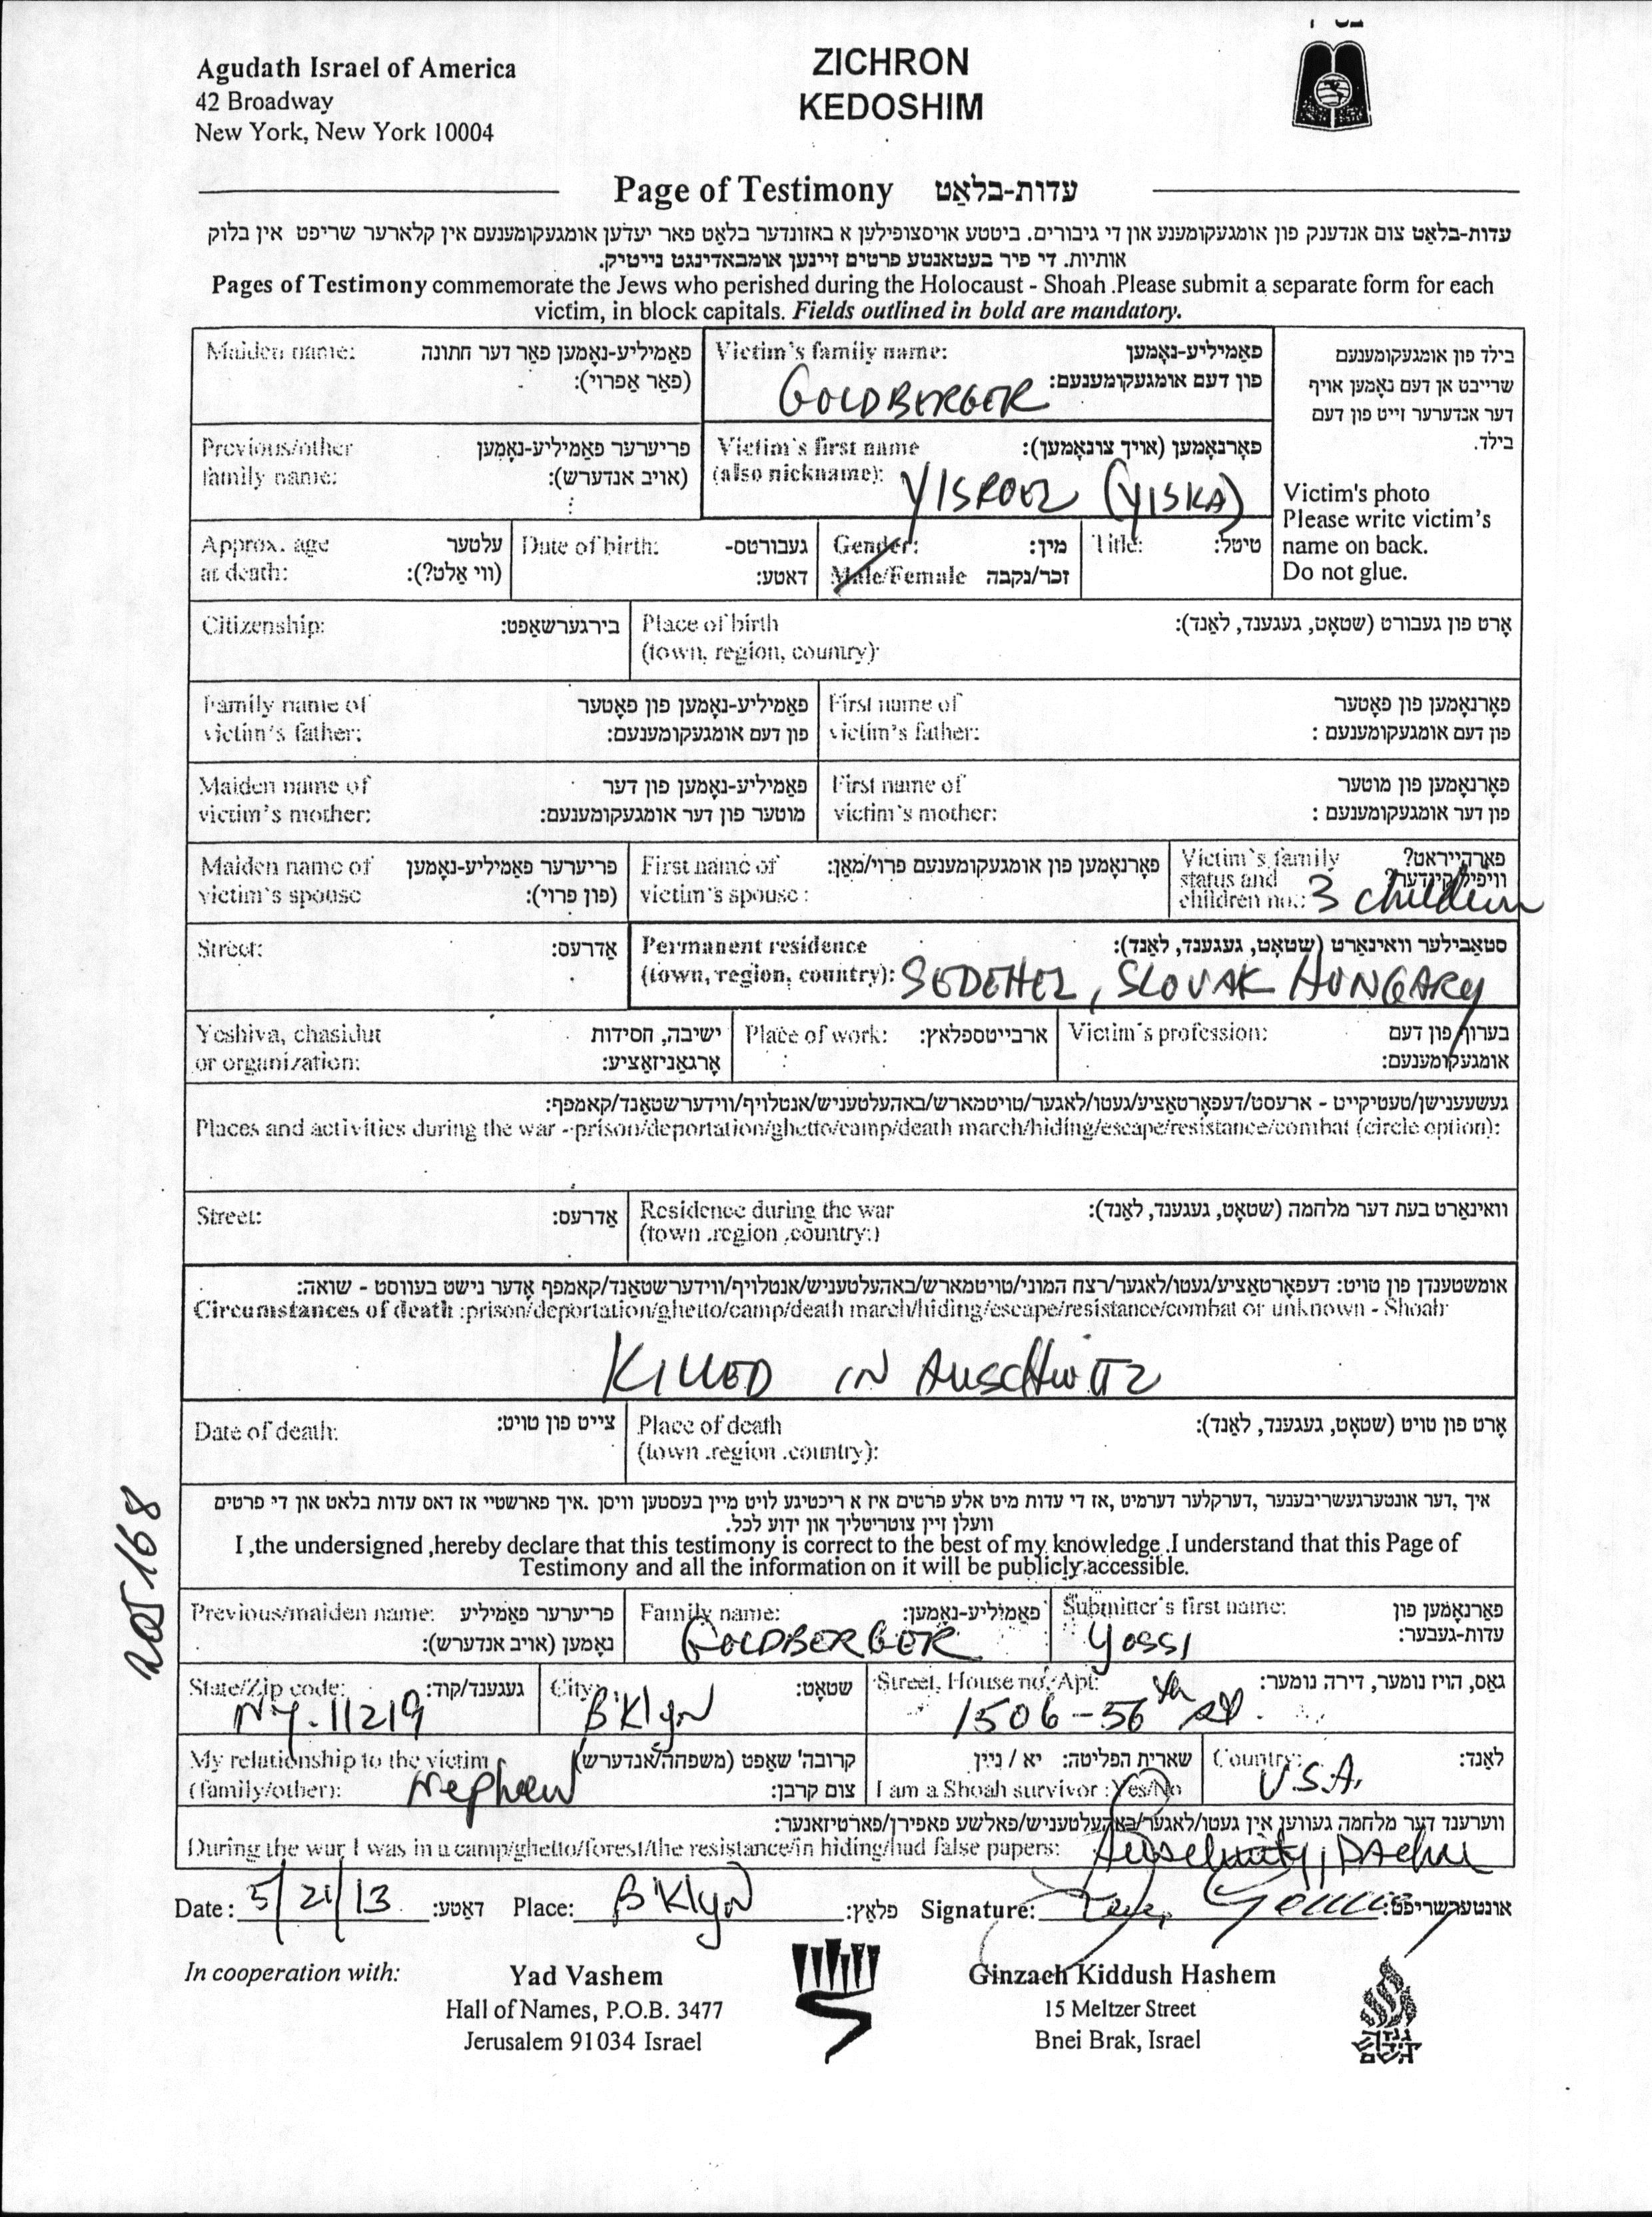 Agudath Israel of America
42 Broadway
New York, New York 10004
ZICHRON
KEDOSHIM
Page of Testimony עדות-בלאַט
עדות-בלאַט צום אנדענק פון אומגעקומענע און די גיבורים. ביטטע אויסצופילען א באזונדער בלאַט פאר יעדען אומגעקומענעם אין קלארער שריפט אין בלוק
אותיות. די פיר בעטאנטע פרטים זיינען אומבאדינגט נייטיק.
Pages of Testimony commemorate the Jews who perished during the Holocaust - Shoah .Please submit a separate form for each
victim, in block capitals. Fields outlined in bold are mandatory.
Maiden name: פאַמיליע-נאָמען פאַר דער חתונה
(פאַר אַפרוי):
Victim's family name: פאַמיליע-נאָמען
פון דעם אומגעקומענעם:
GOLDBERGER
בילד פון אומגעקומענעם
שרייבט אן דעם נאָמען אויף
דער אנדערער זייט פון דעם
בילד.
Victim's photo
Please write victim's
name on back.
Do not glue.
Previous/other פריערער פאַמיליע-נאָמען
family name: (אויב אנדערש):
Victim's first name פאָרנאָמען (אויך צונאָמען):
(also nickname): YISROEL (YISKA)
Approx. age עלטער
at death: (ווי אַלט?):
Date of birth: געבורטס-
דאטע:
Gender: מין:
Male/Female זכר/נקבה
Title: טיטל:
Citizenship: בירגערשאַפט:
Place of birth אָרט פון געבורט (שטאָט, געגענד, לאַנד):
(town, region, country):
Family name of פאַמיליע-נאָמען פון פאָטער
victim's father: פון דעם אומגעקומענעם:
First name of פאָרנאָמען פון פאָטער
victim's father: פון דעם אומגעקומענעם :
Maiden name of פאַמיליע-נאָמען פון דער
victim's mother: מוטער פון דער אומגעקומענעם:
First name of פאָרנאָמען פון מוטער
victim's mother: פון דער אומגעקומענעם :
Maiden name of פריערער פאַמיליע-נאָמען
victim's spouse (פון פרוי):
First name of פאָרנאָמען פון אומגעקומענעם פרוי/מאַן:
victim's spouse :
Victim's family פארהייראט?
status and וויפיל קינדער?
children no.: 3 children
Street: אַדרעס:
Permanent residence סטאַבילער וואוינאָרט (שטאָט, געגענד, לאַנד):
(town, region, country): SEDEHEL, SLOVAK HUNGARY
Yeshiva, chasidut ישיבה, חסידות
or organization: אָרגאַניזאַציע:
Place of work: ארבייטספלאץ:
Victim's profession: בערוף פון דעם
אומגעקומענעם:
געשעענישן/טעטיקייט - ארעסט/דעפאָרטאַציע/געטו/לאגער/טויטמארש/באהעלטעניש/אנטלויף/ווידערשטאַנד/קאמפף:
Places and activities during the war - prison/deportation/ghetto/camp/death march/hiding/escape/resistance/combat (circle option):
Street: אַדרעס:
Residence during the war וואוינאָרט בעת דער מלחמה (שטאָט, געגענד, לאַנד):
(town .region .country:)
אומשטענדן פון טויט: דעפאָרטאַציע/געטו/לאגער/רצח המוני/טויטמארש/באהעלטעניש/אנטלויף/ווידערשטאַנד/קאמפף אָדער נישט בעווסט - שואה:
Circumstances of death :prison/deportation/ghetto/camp/death march/hiding/escape/resistance/combat or unknown - Shoah
KILLED IN AUSCHWITZ
Date of death: צייט פון טויט:
Place of death אָרט פון טויט (שטאָט, געגענד, לאַנד):
(town .region .country):
איך ,דער אונטערגעשריבענער ,דערקלער דערמיט ,אז די עדות מיט אלע פרטים איז א ריכטיגע לויט מיין בעסטען וויסן .איך פארשטיי אז דאס עדות בלאט און די פרטים
וועלן זיין צוטריטליך און ידוע לכל.
I ,the undersigned ,hereby declare that this testimony is correct to the best of my knowledge .I understand that this Page of
Testimony and all the information on it will be publicly accessible.
Previous/maiden name: פריערער פאַמיליע
נאָמען (אויב אנדערש):
Family name: פאַמיליע-נאָמען:
GOLDBERGER
Submitter's first name: פאַרנאָמען פון
עדות-געבער:
YOSSI
State/Zip code: געגענד/קוד:
NY. 11219
City: שטאָט:
B'Klyn
Street, House no, Apt: גאַס, הויז נומער, דירה נומער:
1506 - 56th St.
My relationship to the victim קרובה' שאַפט (משפחה/אנדערש)
(family/other): Nephew צום קרבן:
שארית הפליטה: יא / ניין
I am a Shoah survivor :Yes/No
Country: לאַנד:
U.S.A.
ווערענד דער מלחמה געווען אין געטו/לאגער/באהעלטעניש/פאלשע פאפירן/פארטיזאנער:
During the war I was in a camp/ghetto/forest/the resistance/in hiding/had false papers: Auschwitz, Dachau
Date : 5/21/13 דאַטע: Place: B'Klyn פלאַץ: Signature: אונטערשריפט:
In cooperation with:
Yad Vashem
Hall of Names, P.O.B. 3477
Jerusalem 91034 Israel
Ginzach Kiddush Hashem
15 Meltzer Street
Bnei Brak, Israel
גנזך
קידוש
השם